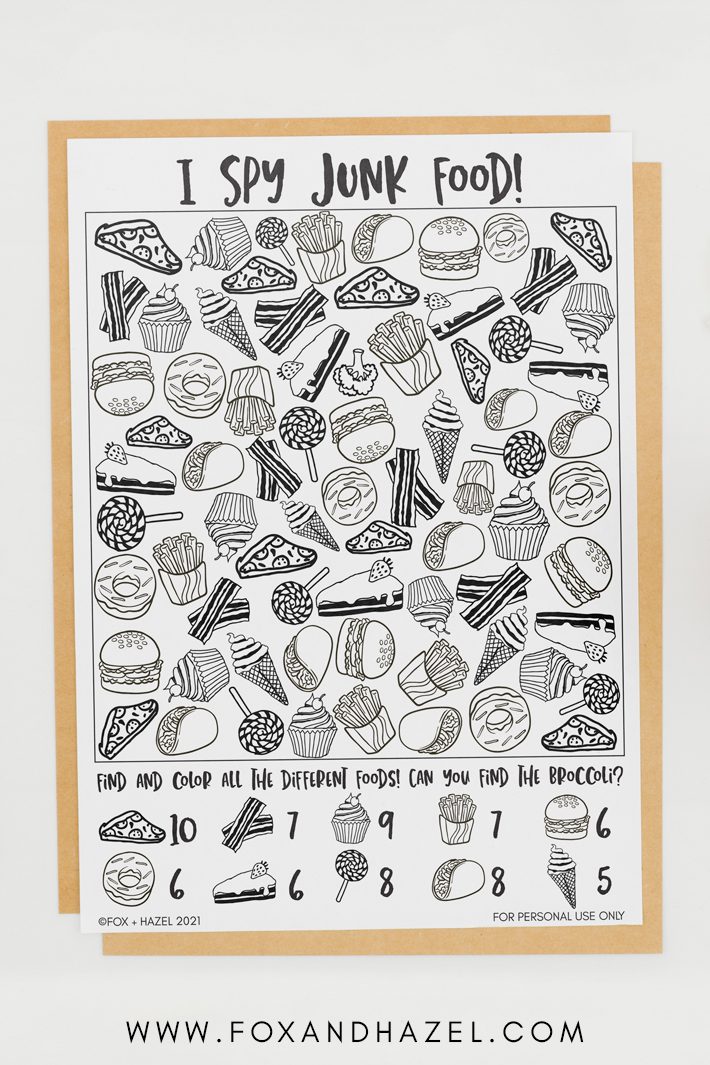 I SPY JUNK FOOD!
FIND AND COLOR ALL THE DIFFERENT FOODS! CAN YOU FIND THE BROCCOLI?
10 7 9 7 6
6 6 8 8 5
©FOX + HAZEL 2021 FOR PERSONAL USE ONLY
WWW.FOXANDHAZEL.COM